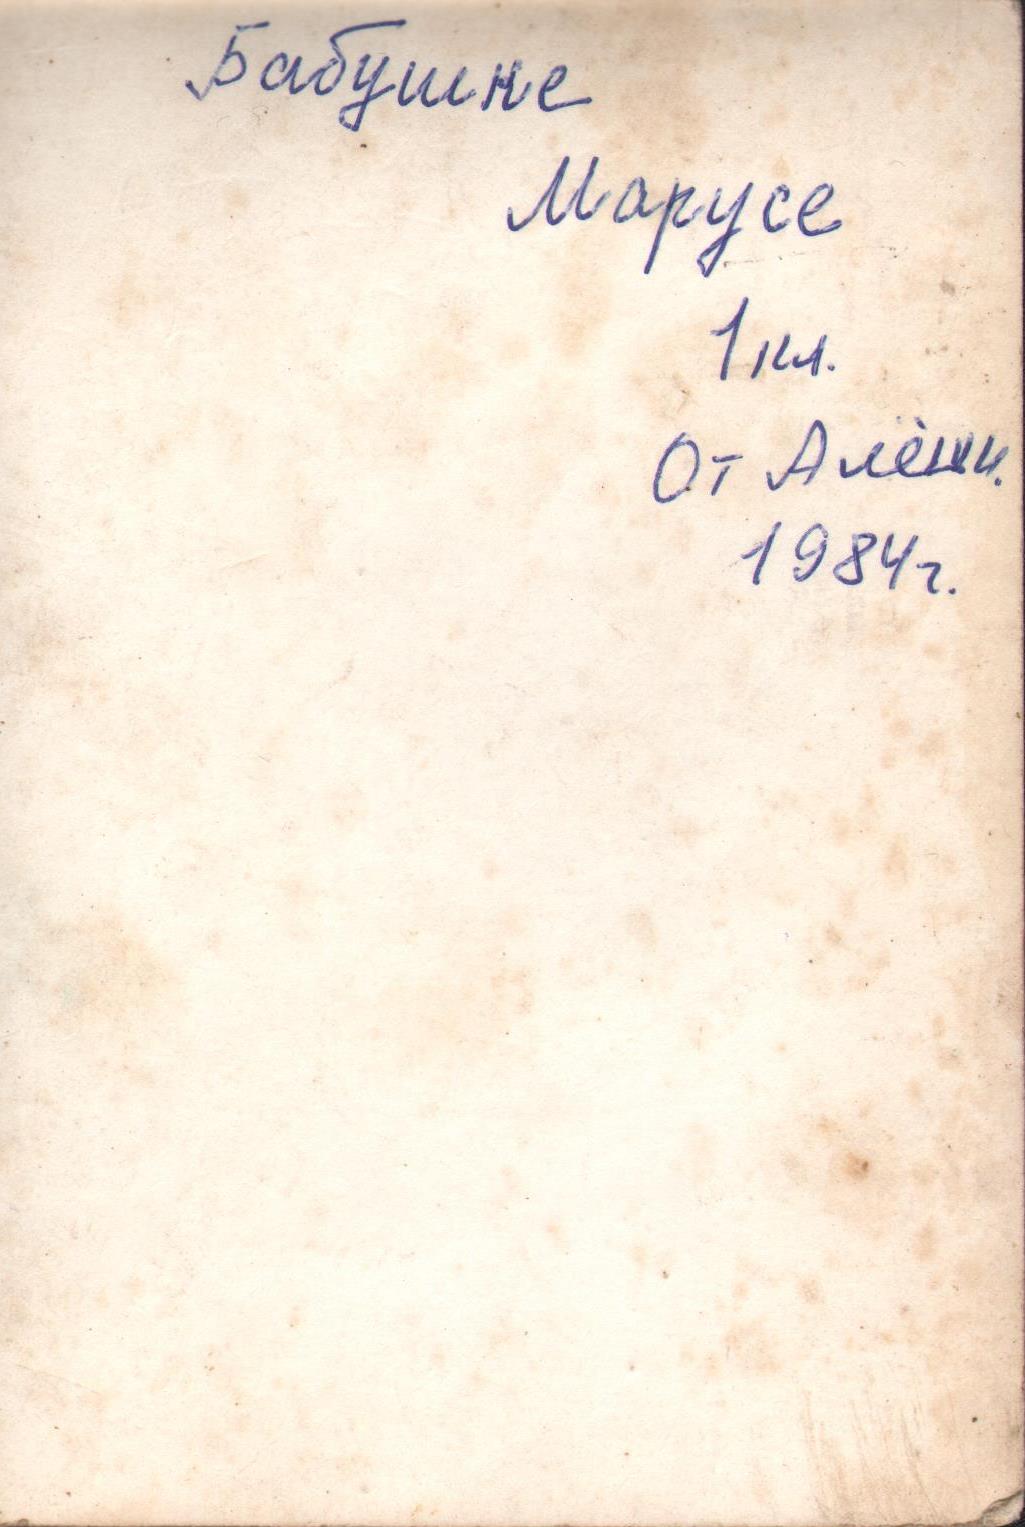 Бабушке
Марусе
1 кл.
От Алёши.
1984г.